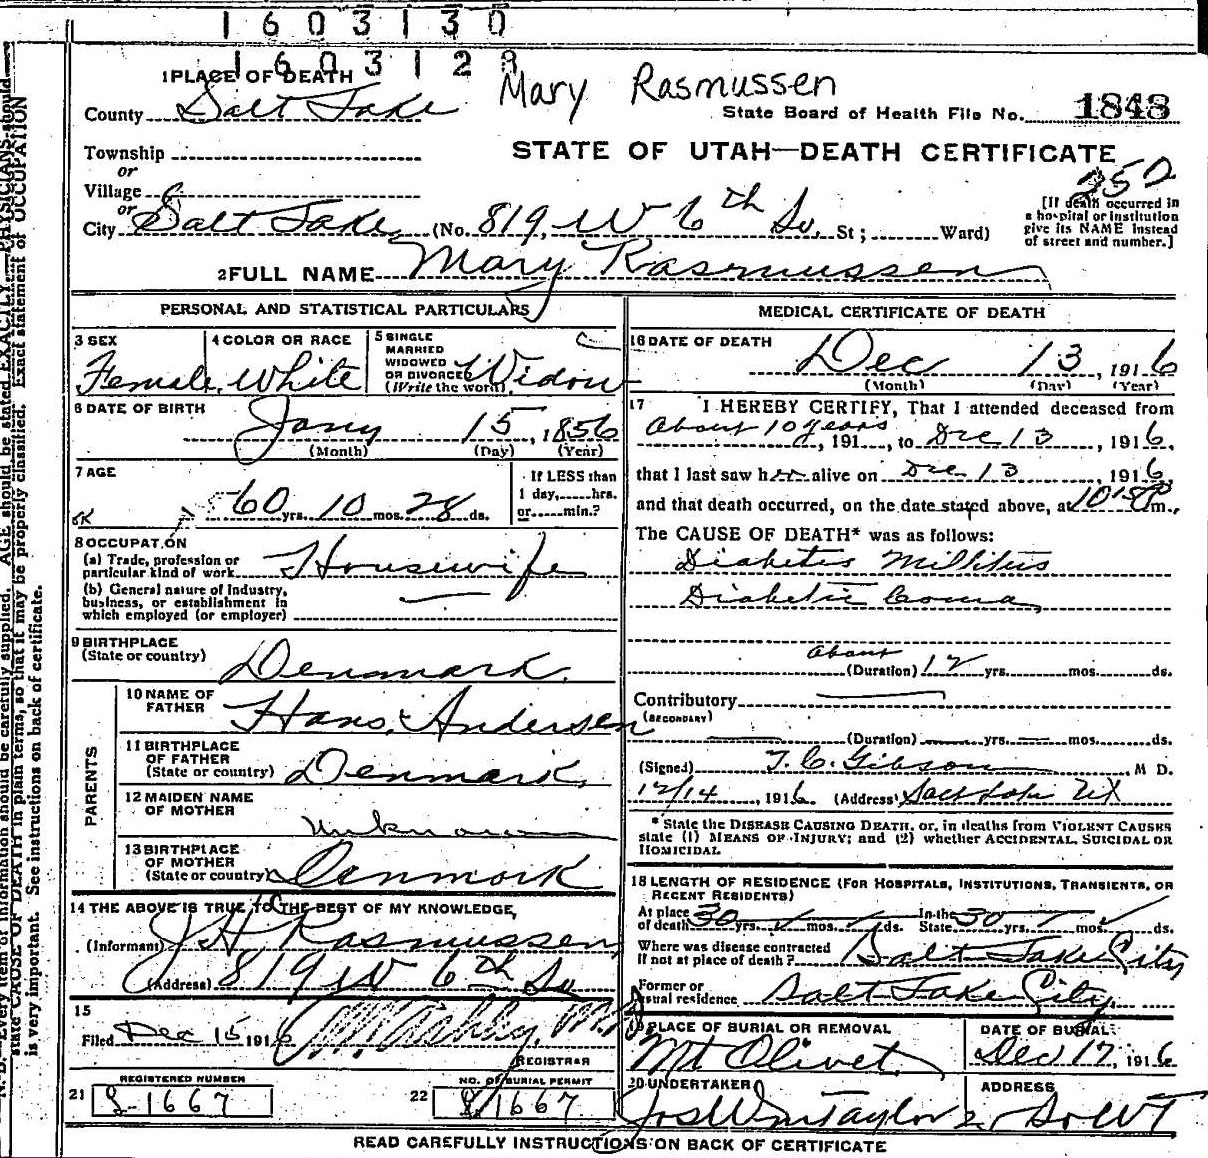 1603130
160312
Mary Rasmussen
1 PLACE OF DEATH
County Salt Lake
State Board of Health File No. 1848
Township
or
Village
or
City Salt Lake (No. 819, W 6th So. St; Ward)
STATE OF UTAH—DEATH CERTIFICATE
[If death occurred in a hospital or institution give its NAME instead of street and number.]
2 FULL NAME Mary Rasmussen
PERSONAL AND STATISTICAL PARTICULARS
3 SEX
Female
4 COLOR OR RACE
White
5 SINGLE
MARRIED
WIDOWED
OR DIVORCED
(Write the word)
Widow
6 DATE OF BIRTH
Jany 15, 1856
(Month) (Day) (Year)
7 AGE
60 yrs. 10 mos. 28 ds.
If LESS than
1 day, hrs.
or min.?
OK
8 OCCUPATION
(a) Trade, profession or
particular kind of work Housewife
(b) General nature of Industry,
business, or establishment in
which employed (or employer)
9 BIRTHPLACE
(State or country) Denmark
PARENTS
10 NAME OF
FATHER Hans Andersen
11 BIRTHPLACE
OF FATHER
(State or country) Denmark
12 MAIDEN NAME
OF MOTHER Unknown
13 BIRTHPLACE
OF MOTHER
(State or country) Denmark
14 THE ABOVE IS TRUE TO THE BEST OF MY KNOWLEDGE,
(Informant) J H Rasmussen
(Address) 819 W 6th So
15
Filed Dec 15 1916
REGISTRAR
REGISTERED NUMBER
21 1667
NO. OF BURIAL PERMIT
22 1667
MEDICAL CERTIFICATE OF DEATH
16 DATE OF DEATH
Dec 13, 1916
(Month) (Day) (Year)
17 I HEREBY CERTIFY, That I attended deceased from
About 10 years, 191, to Dec 13, 1916,
that I last saw her alive on Dec 13, 1916,
and that death occurred, on the date stated above, at m.,
The CAUSE OF DEATH* was as follows:
Diabetes Millitus
Diabetic Coma
about
(Duration) 12 yrs. mos. ds.
Contributory
(SECONDARY)
(Duration) yrs. mos. ds.
(Signed) T. C. Gibson, M D.
12/14, 1916 (Address) Salt Lake
* State the DISEASE CAUSING DEATH, or, in deaths from VIOLENT CAUSES
state (1) MEANS OF INJURY; and (2) whether ACCIDENTAL, SUICIDAL OR
HOMICIDAL
18 LENGTH OF RESIDENCE (FOR HOSPITALS, INSTITUTIONS, TRANSIENTS, OR
RECENT RESIDENTS)
At place
of death 30 yrs. mos. ds.
In the
State 30 yrs. mos. ds.
Where was disease contracted
If not at place of death? Salt Lake City
Former or
usual residence Salt Lake City
19 PLACE OF BURIAL OR REMOVAL
Mt Olivet
DATE OF BURIAL
Dec 17, 1916
20 UNDERTAKER
Jos Wm Taylor
ADDRESS
READ CAREFULLY INSTRUCTIONS ON BACK OF CERTIFICATE
N. B.—Every item of information should be carefully supplied. AGE should be stated EXACTLY. PHYSICIANS should
state CAUSE OF DEATH in plain terms, so that it may be properly classified. Exact statement of OCCUPATION
is very important. See instructions on back of certificate.